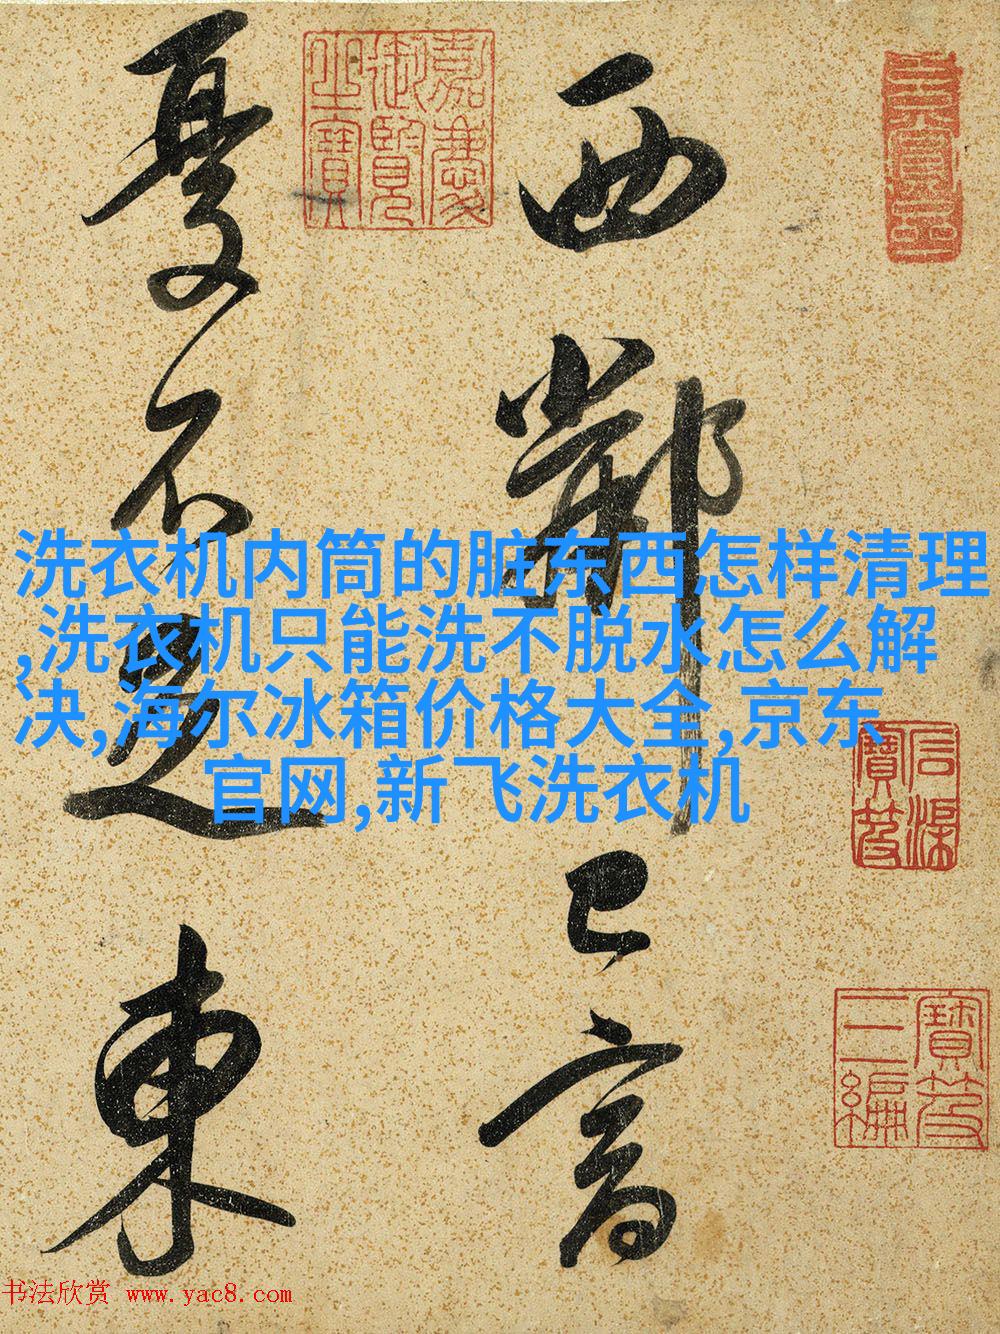 西鄰已富
憂不足東
嘉慶御覽之寶
石渠寶笈
寶笈三編
洗衣机内筒的脏东西怎样清理
,洗衣机只能洗不脱水怎么解
决,海尔冰箱价格大全,京东
官网,新飞洗衣机
书法欣赏 www.yac8.com